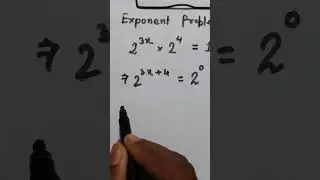 Exponent Proble
2^{3x} × 2^4 = 1
⇒ 2^{3x+4} = 2^0
= 2^0